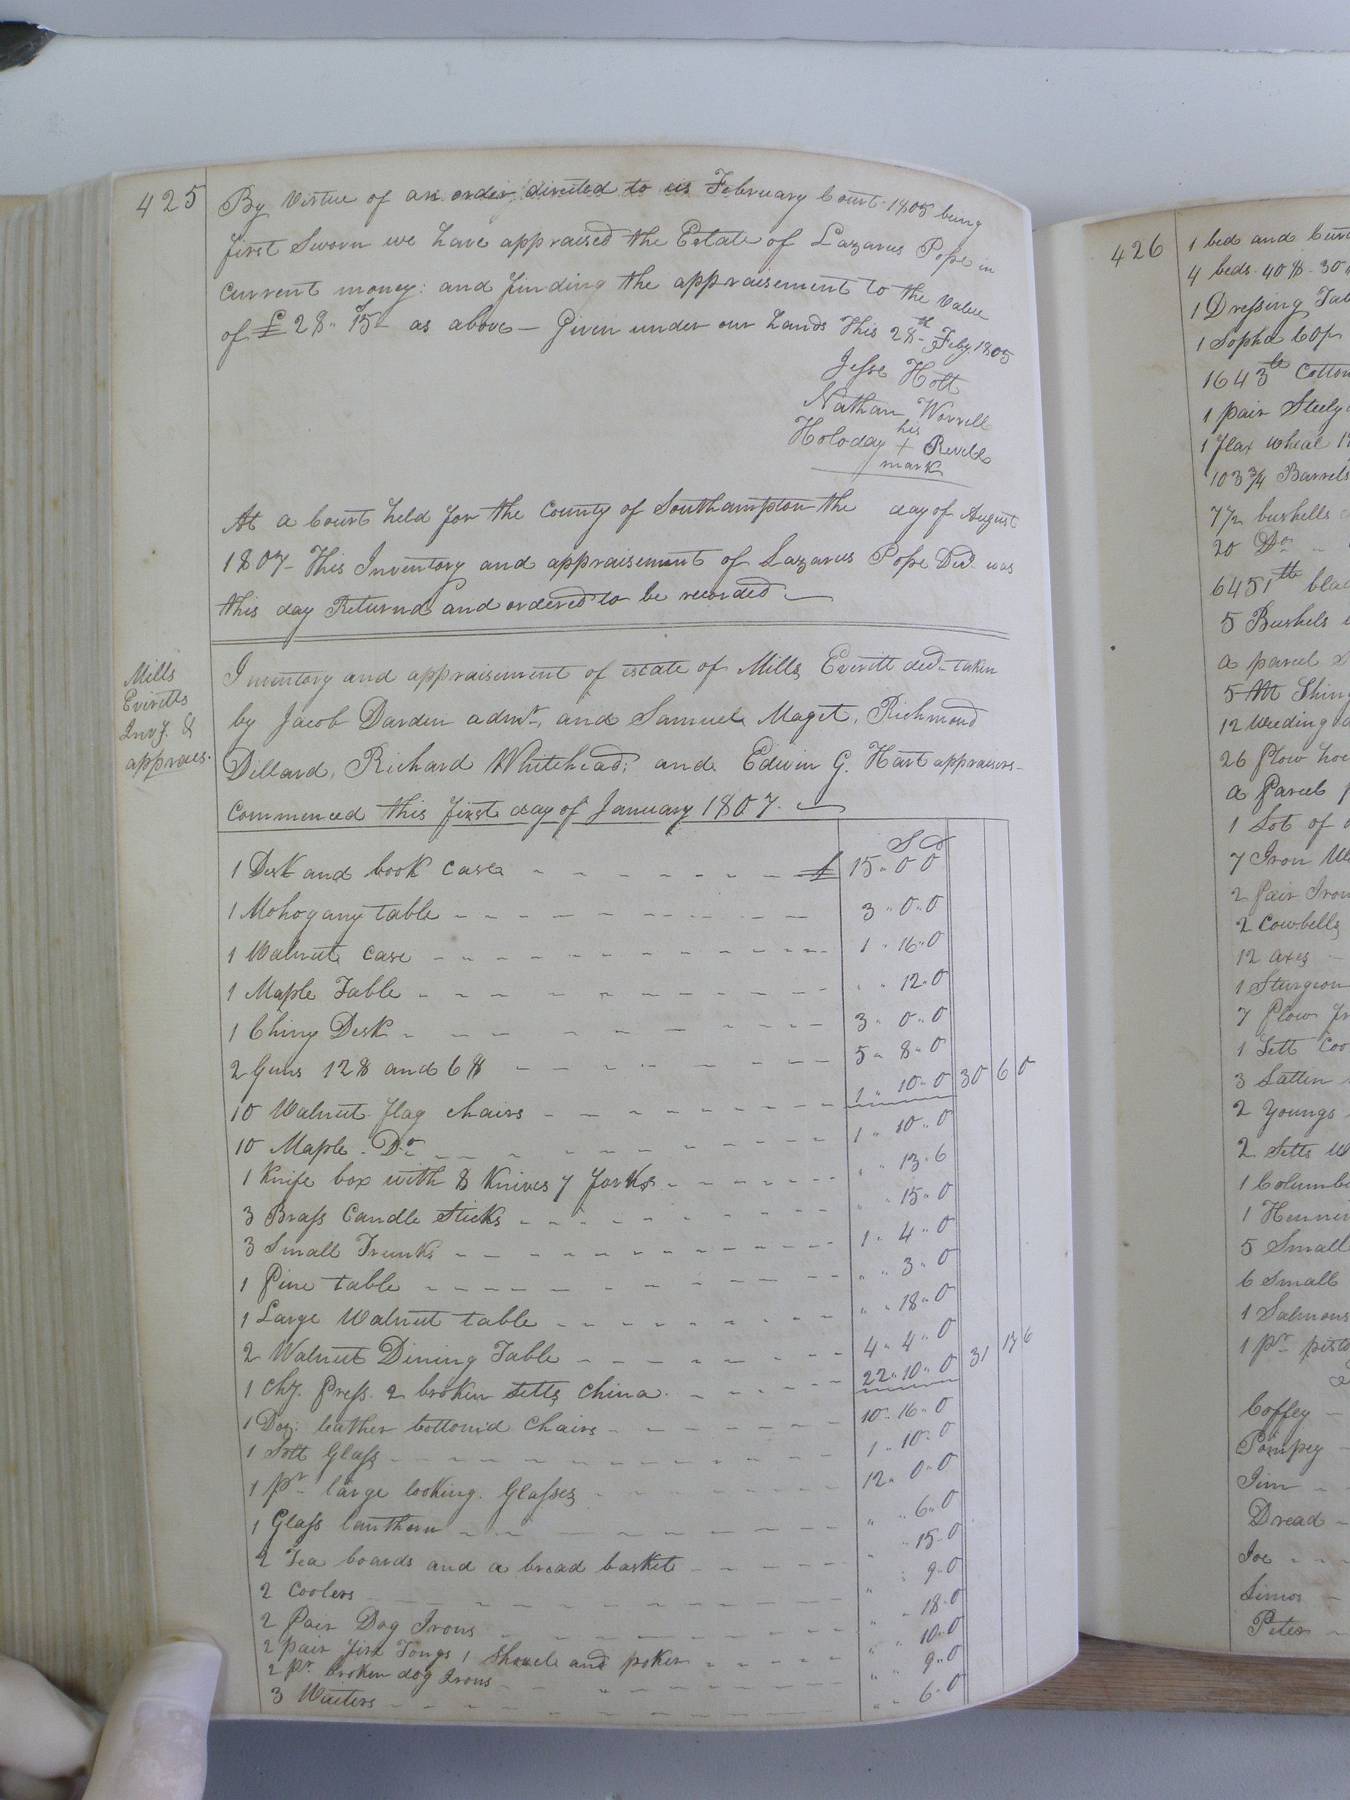 425
By Virtue of an order directed to us February Court 1805 being
first Sworn we have appraised the Estate of Lazarus Pope in
Current money: and finding the appraisement to the value
of £28.. 15- as above - Given under our hands this 28th Feby. 1805
Jesse Holt
Nathan Worrell
his
Holoday + Revels
mark
At a Court held for the County of Southampton the day of August
1807- This Inventory and appraisement of Lazarus Pope Decd. was
this day Returnd and ordered to be recorded
Mills
Everitts
Invy. &
appraes.
Inventory and appraisement of estate of Mills Everitt decd. taken
by Jacob Darden admr., and Samuel Maget, Richmond
Dillard, Richard Whitehead; and Edwin G. Hart appraisers
commenced this first day of January 1807.
S D
1 Desk and book case £ 15.. 0 0
1 Mohogany table 3 .. 0.. 0
1 Walnut case 1 .. 16.. 0
1 Maple Table .. .. 12.. 0
1 Chiny Desk 3 .. 0.. 0
2 Guns 12$ and 6$ 5 .. 8.. 0
10 Walnut flag chairs 1 .. 10.. 0 30 6 0
10 Maple Do 1 .. 10.. 0
1 Knife box with 8 Knives 7 forks .. .. 13.. 6
3 Brass Candle Sticks .. .. 15.. 0
3 Small Trunks 1 .. 4.. 0
1 Pine table .. .. 3.. 0
1 Large Walnut table .. .. 18.. 0
2 Walnut Dining Table 4 .. 4.. 0
1 Chy. Press. 2 broken Setts China 22.. 10.. 0 31 13 6
1 Doz: leather bottomd Chairs 10.. 16.. 0
1 Sett Glass 1 .. 10.. 0
1 Pr large looking Glasses 12.. 0.. 0
1 Glass lanthorn .. .. 6.. 0
2 Tea boards and a bread basket .. .. 15.. 0
2 Coolers .. .. 9.. 0
2 Pair Dog Irons .. .. 18.. 0
2 pair fire Tongs 1 Shovele and poker .. .. 10.. 0
2 Pr. broken dog Irons .. .. 9.. 0
3 Waiters .. .. 6.. 0
426
1 bed and
4 beds 40$
1 Dressing
1 Sopha
1643 lb Cotton
1 pair
1 flax wheal
103 3/4 Barrels
7 1/2 bushells
20 Do
6451 lb
5 Bushels
a parcel
5 M
12 Weeding
26 Plow
a Parcel
1 Lot of
7 Iron
2 Pair
2 Cowbells
12 axes
1 Sturgeon
7 Plow
1 Sett
3 Latten
2 Youngs
2 Setts
1
1
5 Small
6 Small
1 Salmons
1 Pr
Coffey
Pompey
Jim
Dread
Joe
Simos
Peter